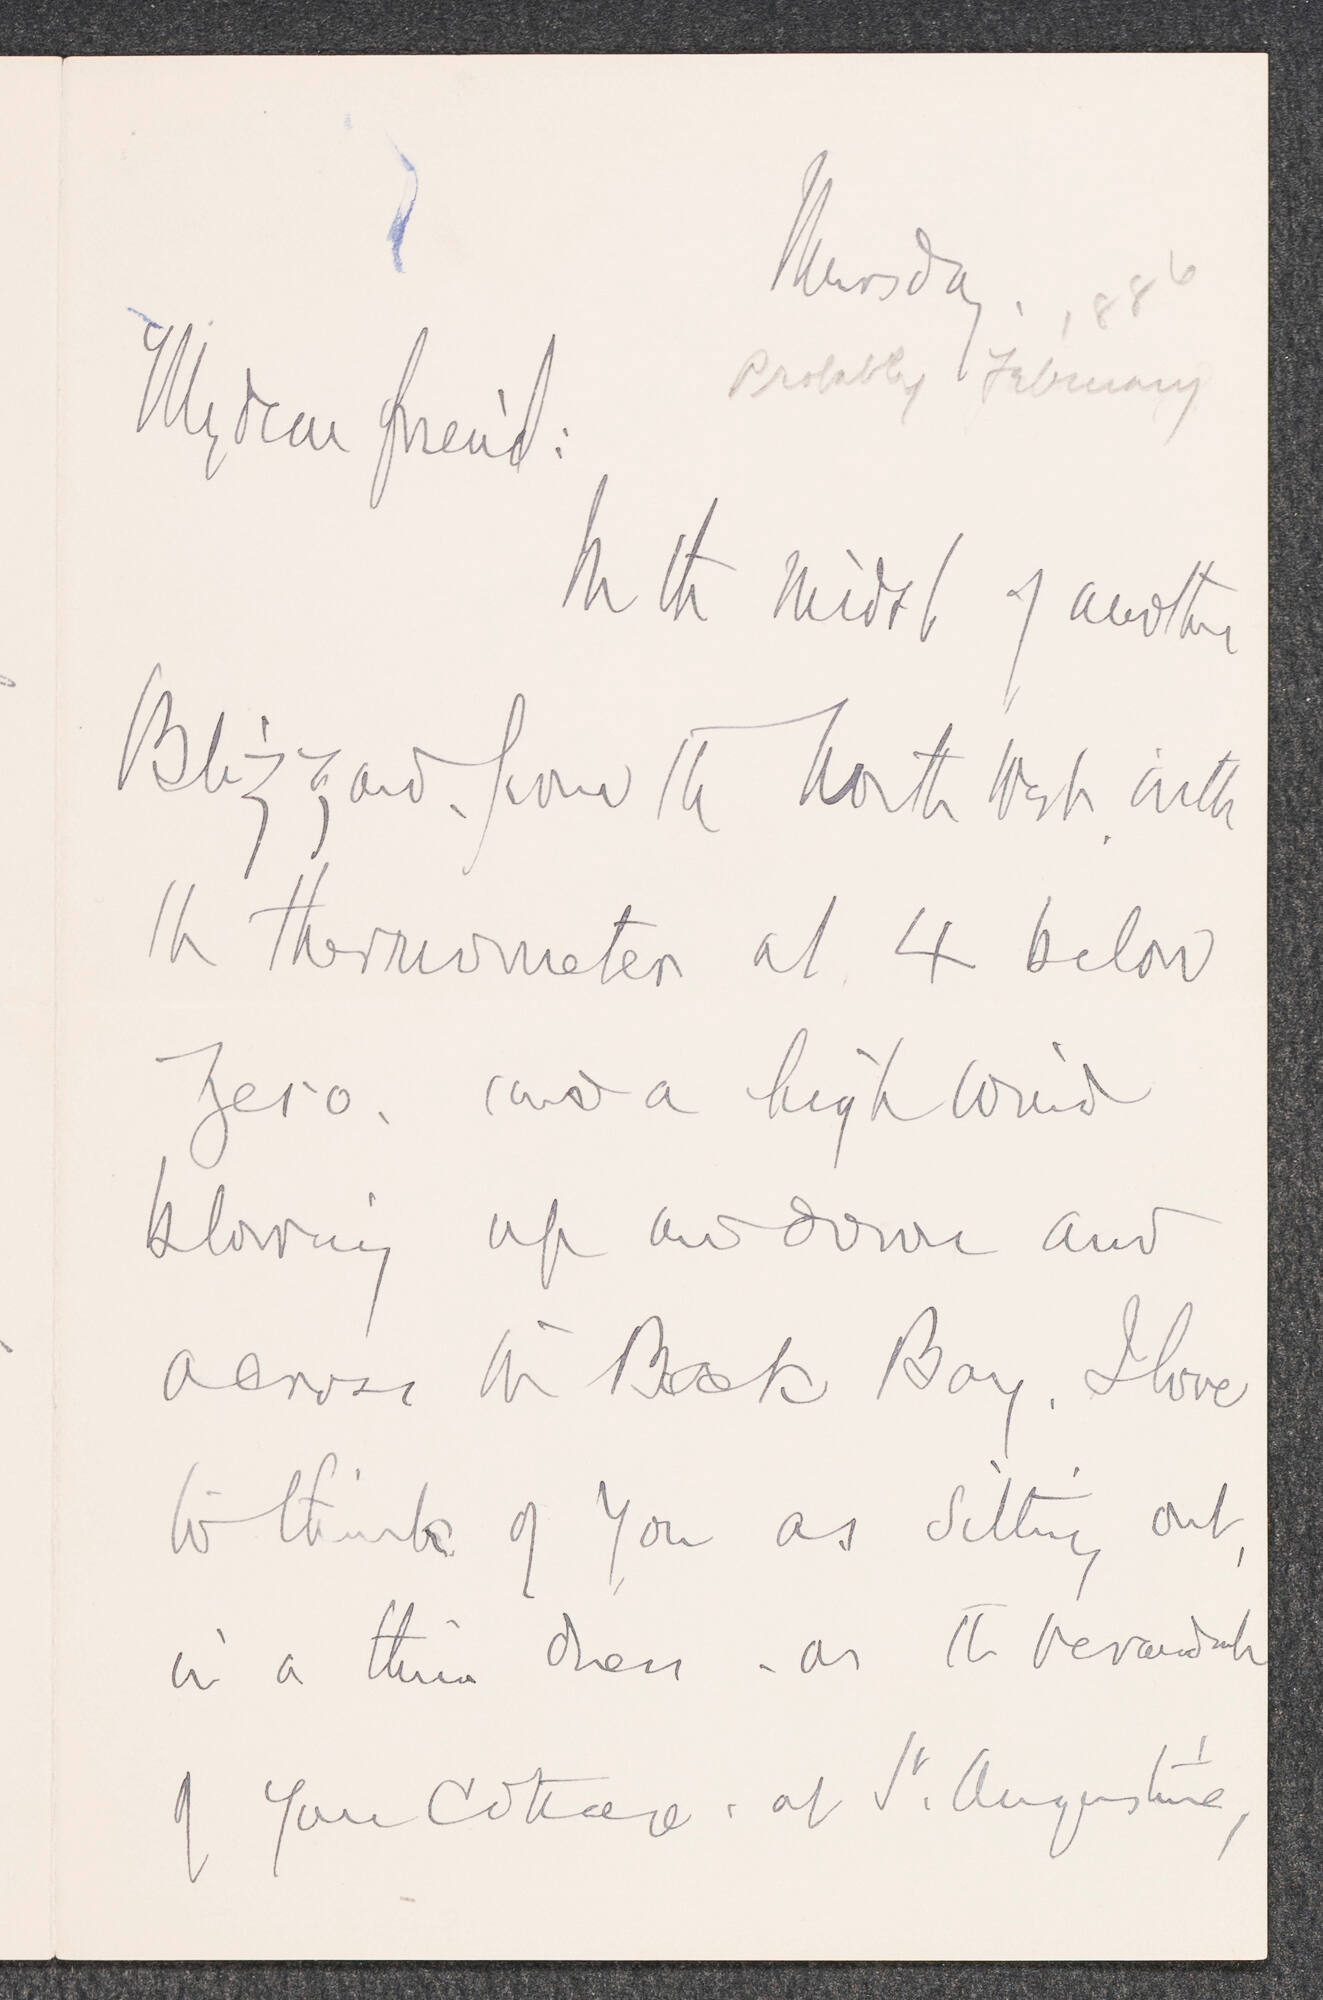 Thursday. 1886
Probably February
My dear friend:
In the midst of another
Blizzard, from the North West, with
the thermometer at 4 below
Zero, and a high wind
blowing up and down and
across the Back Bay, I love
to think of you as sitting out,
in a thin dress - on the verandah
of your Cottage, at St. Augustine,